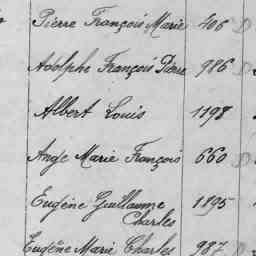 Pierre François Marie 406 D
Adolphe François Pierre 986 D
Albert Louis 1198
Ange Marie François 660 D
Eugène Guillaume 1195
Charles
Eugène Marie Charles 987 D